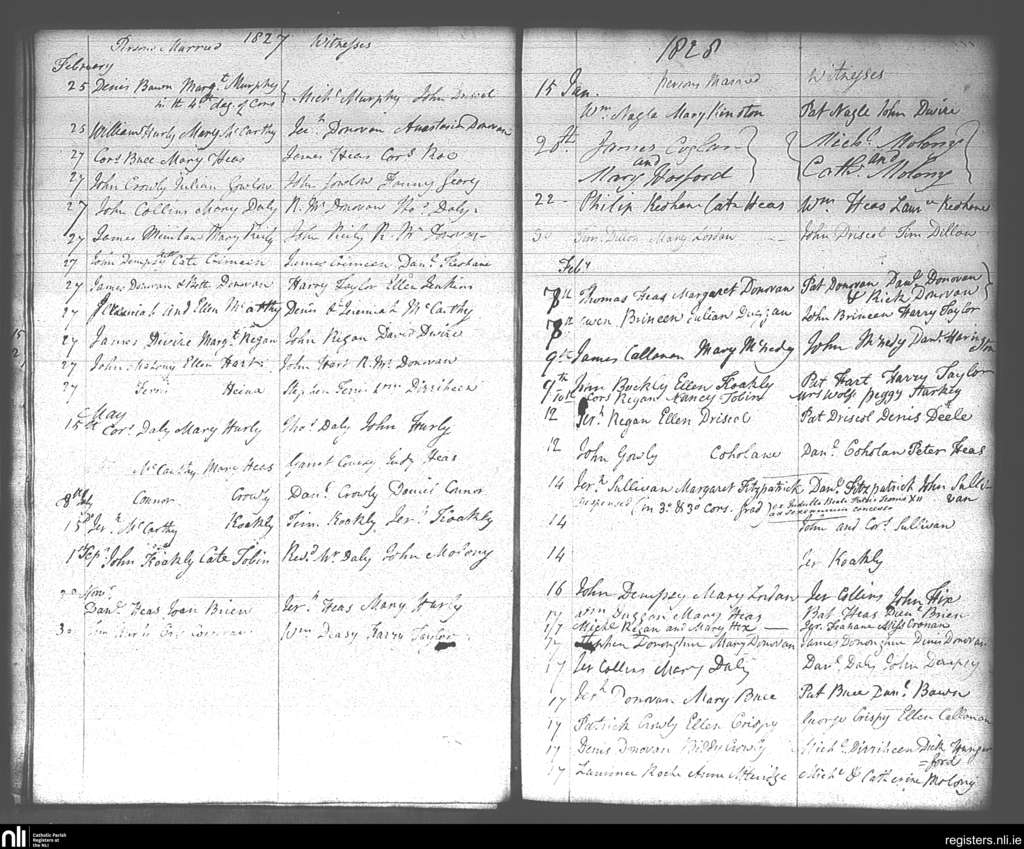 Persons Married 1827 Witnesses
February
25 Denis Bawn Margt. Murphy
in the 4th deg. of Cons
Michl. Murphy John Driscol
25 William Hurly Mary McCarthy Donovan Anastasia Donovan
27 Cors. Buee Mary Heas James Heas Cors. Roe
27 John Crowly Julian John Fanny Geory
27 John Collins Mary Daly R. Mr. Donovan Thos. Daly
27 James Mary Reily John Reily R. Mr. Donovan
27 John Dempsy Cate Crimeen James Crimeen Danl. Keohane
27 James Donovan & Bett Donovan Harry Taylor Ellen Jenkins
27 Jeremiah and Ellen McCarthy Denis & Jeremiah McCarthy
27 James Dwire Margt. Regan John Regan David Dwire
27 John Mahony Ellen Hart John Hart R. Mr. Donovan
27 Heina Stephen Wm Dirriheen
May
15th Cors. Daly Mary Hurly Thos. Daly John Hurly
McCarthy Mary Heas Garret Judy Heas
8th July Connor Crowly Danl. Crowly Daniel Connor
15th Jerh. McCarthy Koakly Tim. Koakly Jerh. Koakly
1st Sep. John Koakly Cate Tobin Revd. Mr. Daly John Molony
Novr.
Danl. Heas Joan Brien Jerh. Heas Mary Hurly
30 Wm Deasy Harry Taylor
1828
Persons Married Witnesses
15 Jan.
Wm. Nagle Mary Kinston Pat Nagle John Dwire
20th James Coghlan
and
Mary Hosford
Michl. Molony
and
Cathe. Molony
22 Philip Keohane Cate Heas Wm Heas Laure Keohane
30 Tim. Dillon Mary Lordan John Driscol Tim Dillon
Feby
7th Thomas Heas Margaret Donovan Pat Donovan Danl. Donovan
& Rick Donovan
8th Owen Brineen Julian Duggan John Brineen Harry Taylor
9th James Callanan Mary McNedy John McNedy Danl. Harington
9th Jim Buckly Ellen Koakly Pat Hart Harry Taylor
10th Cors Regan Nancy Tobin Mrs Wolfe Peggy Hurly
12 Jerh. Regan Ellen Driscol Pat Driscol Denis Deele
12 John Gowly Coholane Danl. Coholan Peter Heas
14 Jerh. Sullivan Margaret Fitzpatrick Danl. Fitzpatrick John Sulli-
van
Dispensed (in 3o & 3o Cons. grad)
14 John and Cors. Sullivan
14 Jer Koakly
16 John Dempsey Mary Lordan Jer Collins John Hix
17 Wm Duggan Mary Heas Bat Heas Danl. Brien
17 Michl Regan and Mary Hix Jer. Keohane Miss Cronan
17 Stephen Donoghue Mary Donovan James Donoghue Denis Donovan
17 Jer Collins Mary Daly Danl. Daly John Dempsy
17 Jerh. Donovan Mary Buee Pat Buee Danl. Bawn
17 Patrick Crowly Ellen Crispy George Crispy Ellen Callanan
17 Denis Donovan Biddy Crowly Michl. Dirriheen Dick Hunger
=ford
17 Laurence Roche Anne Michl. & Catherine Molony
nli Catholic Parish
Registers at
the NLI
registers.nli.ie